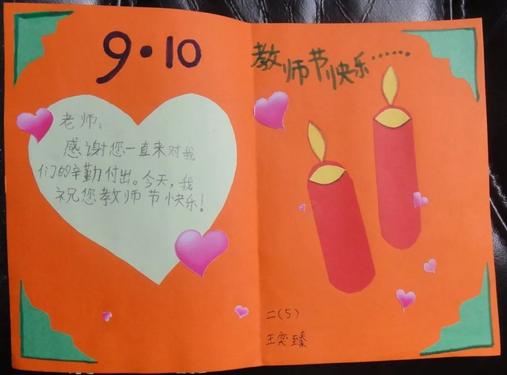 9·10
老师：
感谢您一直来对我
们的辛勤付出。今天，我
祝您教师节快乐！
教师节快乐……
二（5）
王奕臻